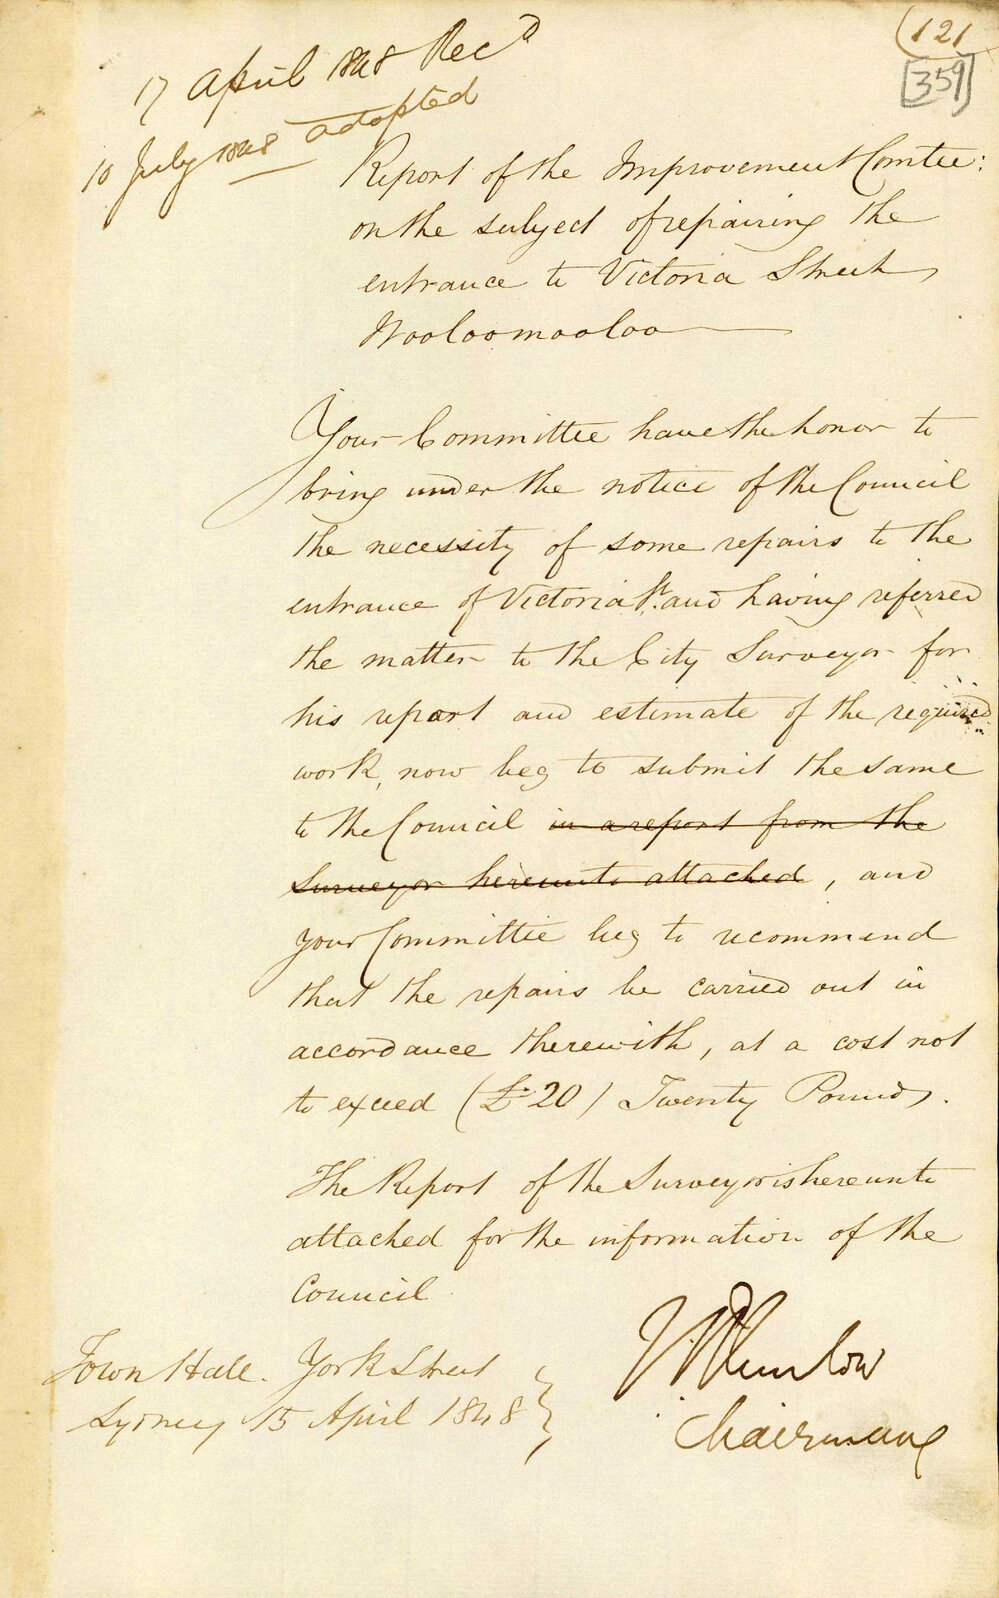 (121
[359]
17 April 1848 Recd
10 July 1848 adopted
Report of the Improvement Comtee:
on the subject of repairing the
entrance to Victoria Street,
Wooloomooloo
Your Committee have the honor to
bring under the notice of the Council
the necessity of some repairs to the
entrance of Victoria St. and having referred
the matter to the City Surveyor for
his report and estimate of the required
work, now beg to submit the same
to the Council in a report from the
surveyor hereunto attached, and
your Committee beg to recommend
that the repairs be carried out in
accordance therewith, at a cost not
to exceed (£20) Twenty Pounds.
The Report of the Surveyor is hereunto
attached for the information of the
Council
Town Hall. York Street
Sydney 15 April 1848
Chairman